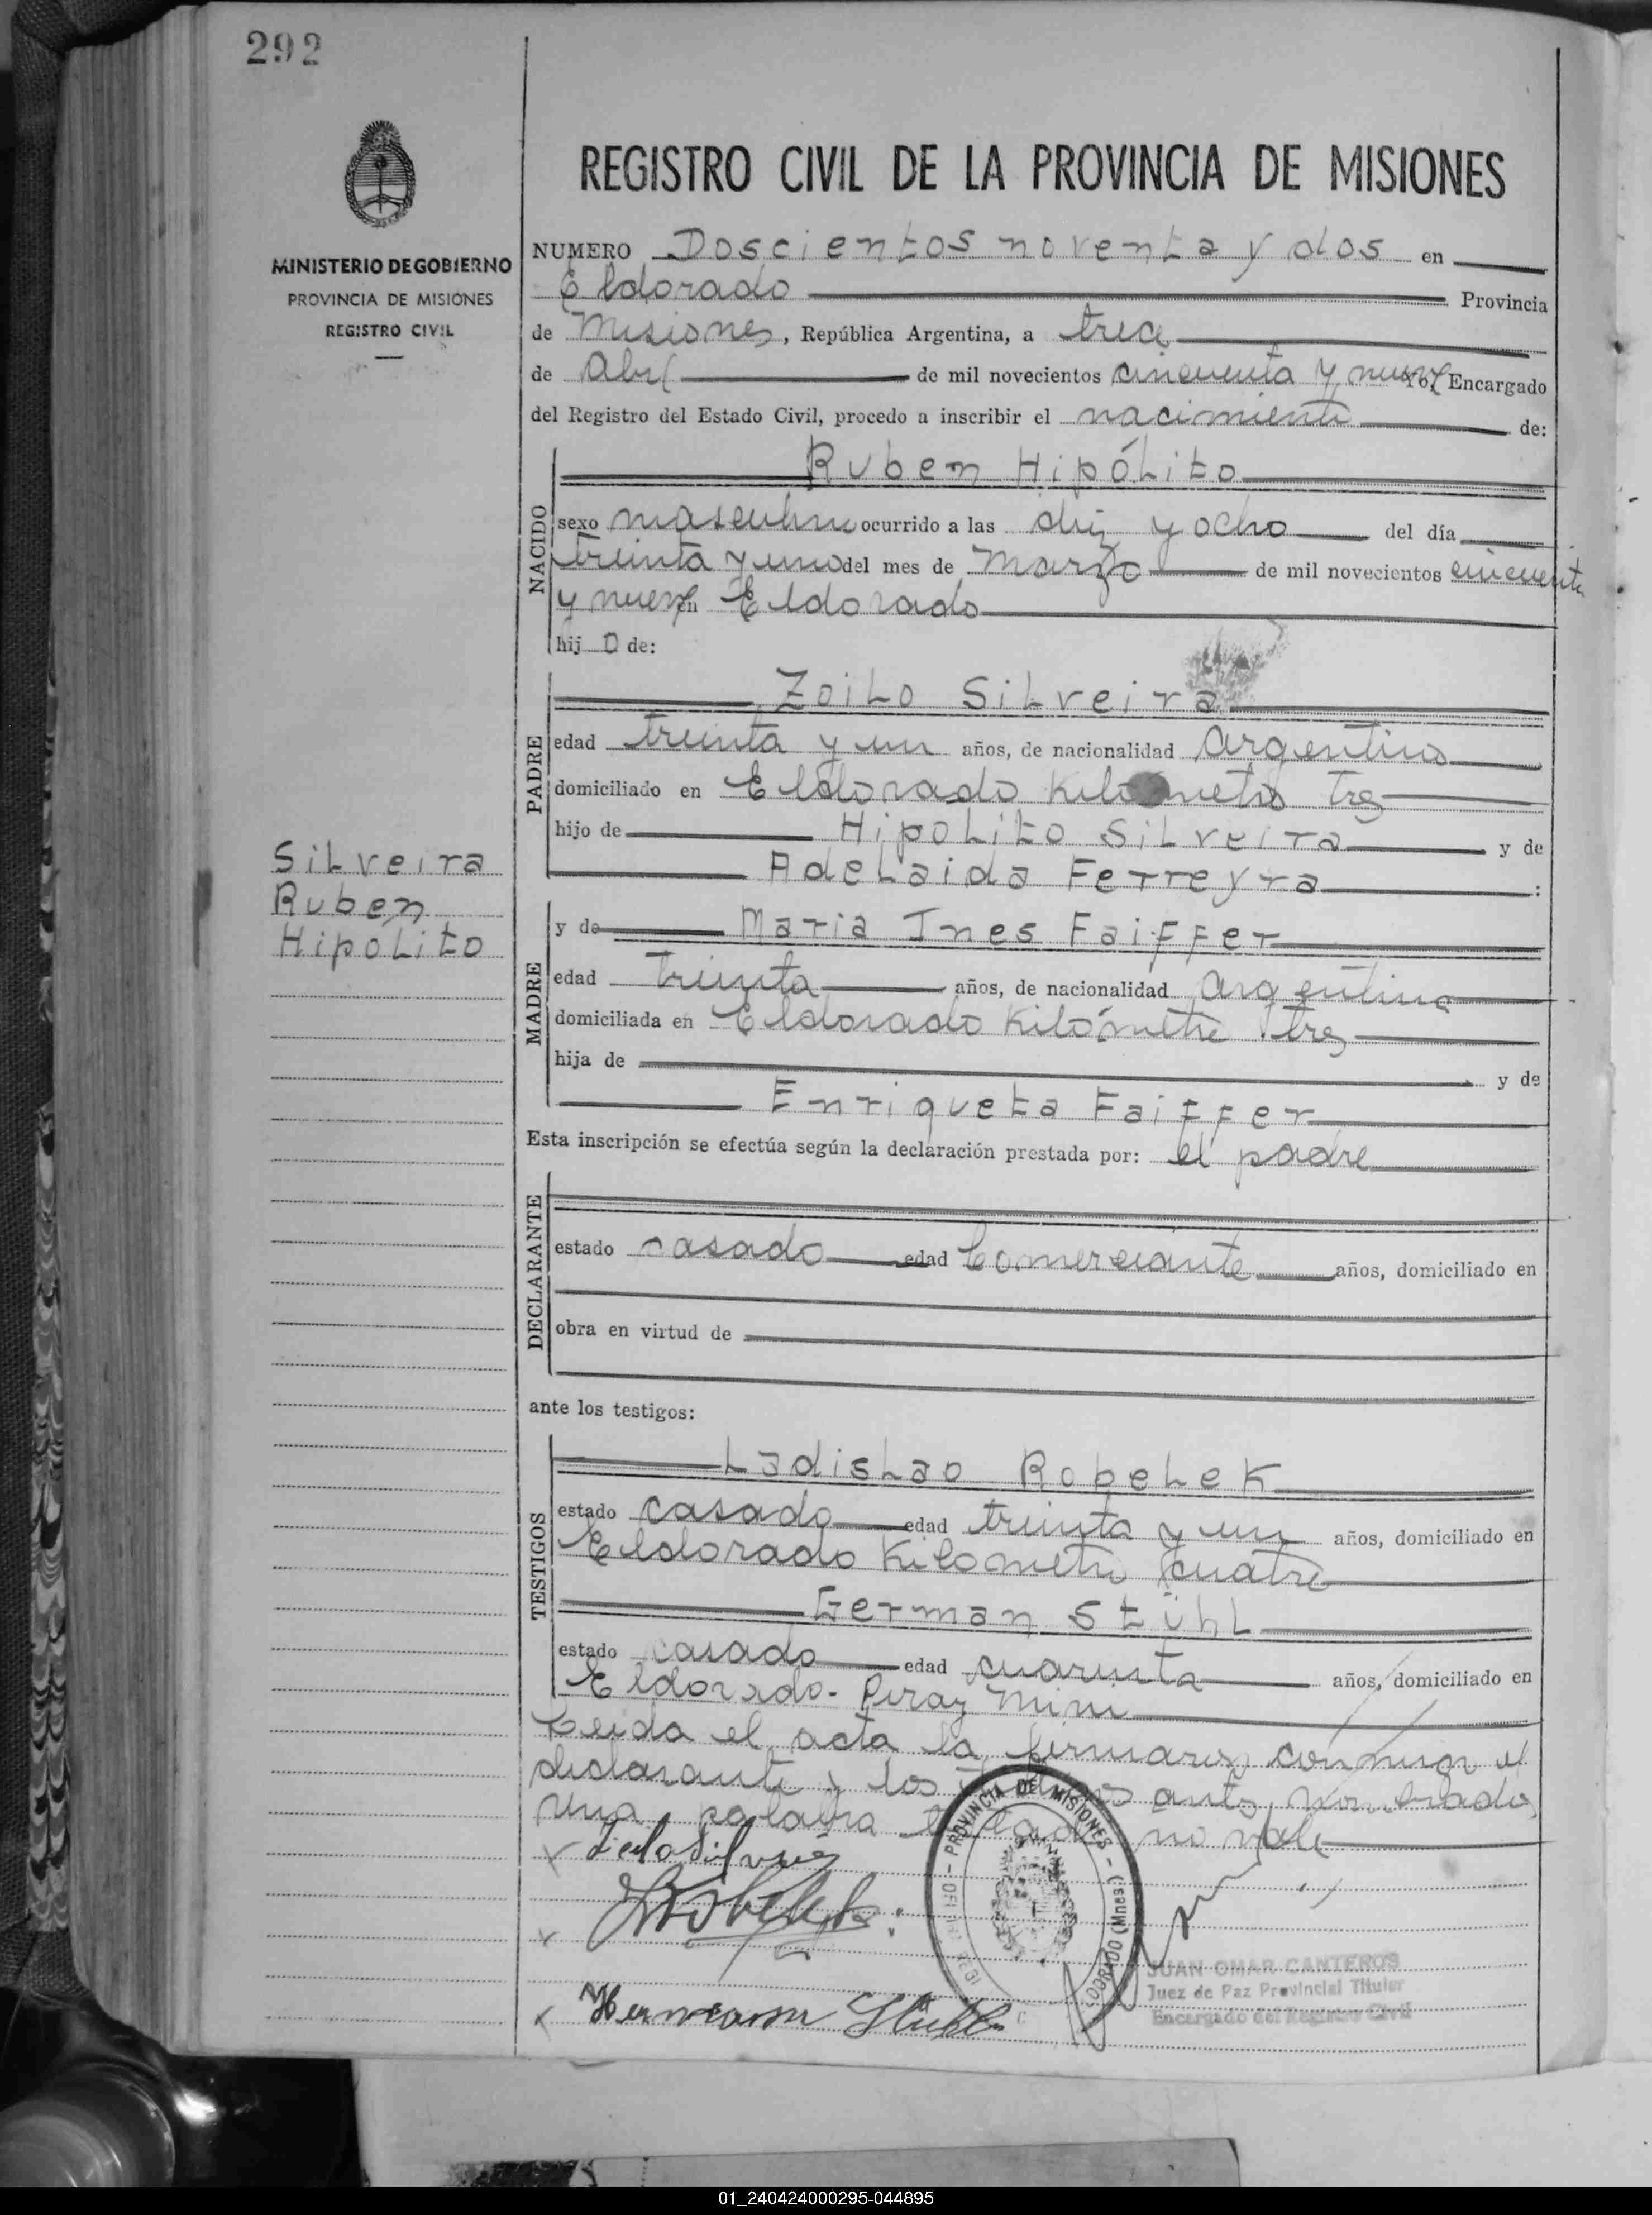 292
MINISTERIO DE GOBIERNO
PROVINCIA DE MISIONES
REGISTRO CIVIL
REGISTRO CIVIL DE LA PROVINCIA DE MISIONES
NUMERO Doscientos noventa y dos en
Eldorado Provincia
de Misiones, República Argentina, a trece
de Abril de mil novecientos cincuenta y nueve Yo, Encargado
del Registro del Estado Civil, procedo a inscribir el nacimiento de:
NACIDO
Ruben Hipólito
sexo masculino ocurrido a las diez y ocho del día
treinta y uno del mes de Marzo de mil novecientos cincuenta
y nueve en Eldorado
hijo de:
PADRE
Zoilo Silveira
edad treinta y un años, de nacionalidad Argentino
domiciliado en Eldorado Kilometro tres
hijo de Hipolito Silveira y de
Adelaida Ferreyra :
Silveira
Ruben
Hipólito
MADRE
y de Maria Ines Faiffer
edad treinta años, de nacionalidad Argentina
domiciliada en Eldorado Kilómetro tres
hija de y de
Enriqueta Faiffer
Esta inscripción se efectúa según la declaración prestada por: el padre
DECLARANTE
estado casado edad Comerciante años, domiciliado en
obra en virtud de
ante los testigos:
TESTIGOS
Ladislao Robelek
estado casado edad treinta y un años, domiciliado en
Eldorado Kilometro cuatro
German Stühl
estado casado edad cuarenta años, domiciliado en
Eldorado - Piray Mini
Leida el acta la firmaron conmigo el
declarante y los testigos antes nombrados
una palabra no vale
PROVINCIA DE MISIONES
ELDORADO (Mnes.)
Hermann
JUAN OMAR CANTEROS
Juez de Paz Provincial Titular
Encargado del Registro Civil
01_240424000295-044895